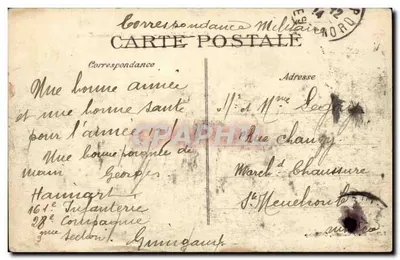 Correspondance Militaire
CARTE POSTALE
Correspondance
Adresse
Une bonne année
et une bonne santé
pour l'année
Une bonne poignée de
main Georges
Hannart
161e Infanterie
28e Compagnie
3me section Guingamp
Mr et Mme
Rue Chanzy
March d Chaussure
Ste Menehould
NORD